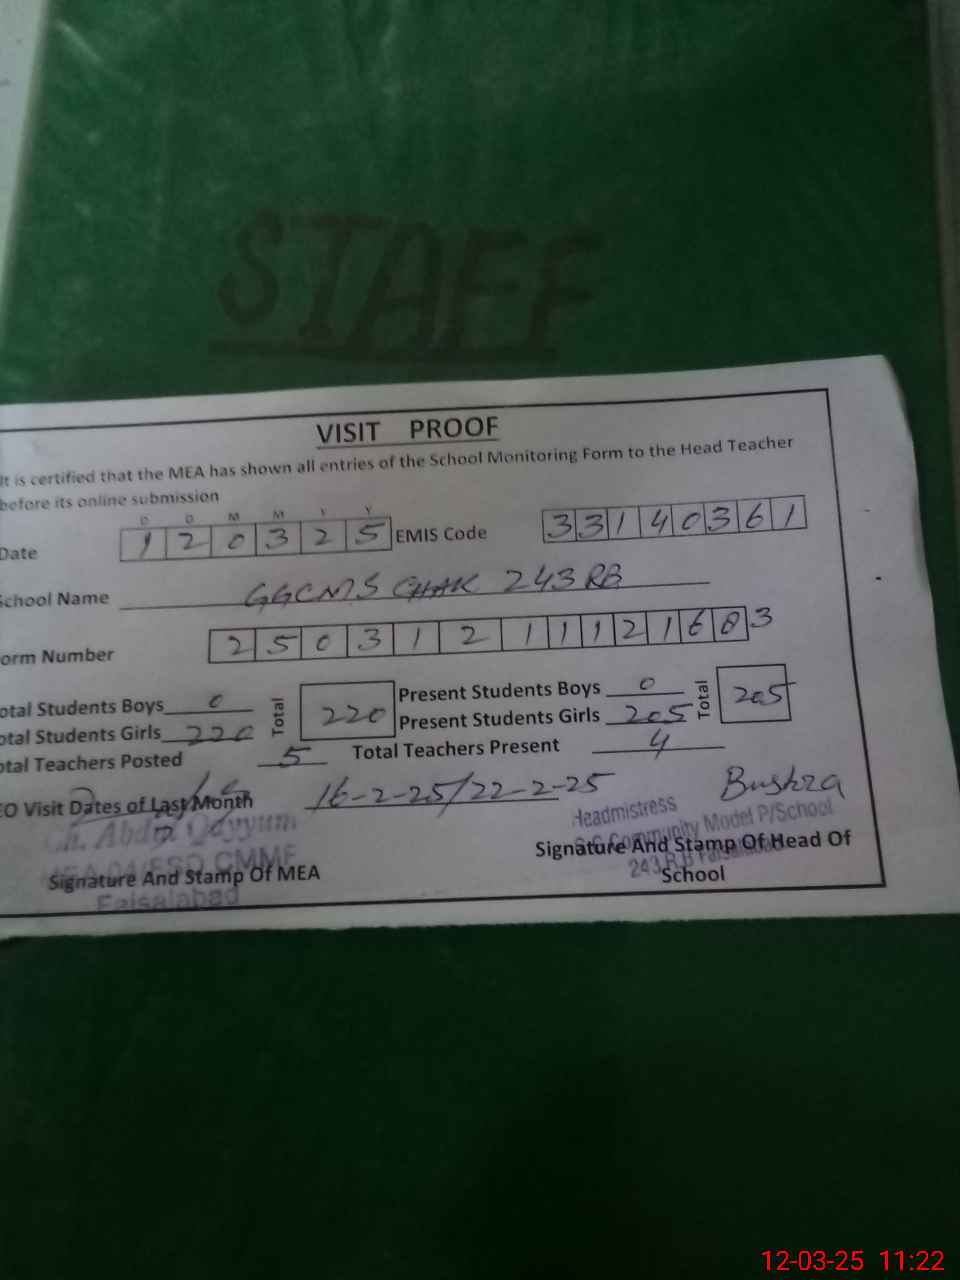 STAFF
VISIT PROOF
It is certified that the MEA has shown all entries of the School Monitoring Form to the Head Teacher
before its online submission
D D M M Y Y
Date 1 2 0 3 2 5 EMIS Code 3 3 1 4 0 3 6 1
School Name GGCMS CHAK 243 RB
orm Number 2 5 0 3 1 2 1 1 1 2 1 6 0 3
otal Students Boys 0 Total 220 Present Students Boys 0 Total 205
otal Students Girls 220 Present Students Girls 205
otal Teachers Posted 5 Total Teachers Present 4
EO Visit Dates of Last Month 16-2-25/22-2-25 Bushra
Ch. Abdul Qayyum Headmistress
Community Model P/School
Signature And Stamp Of MEA Signature And Stamp Of Head Of
243 R.B Faisalabad
School
Faisalabad
12-03-25 11:22